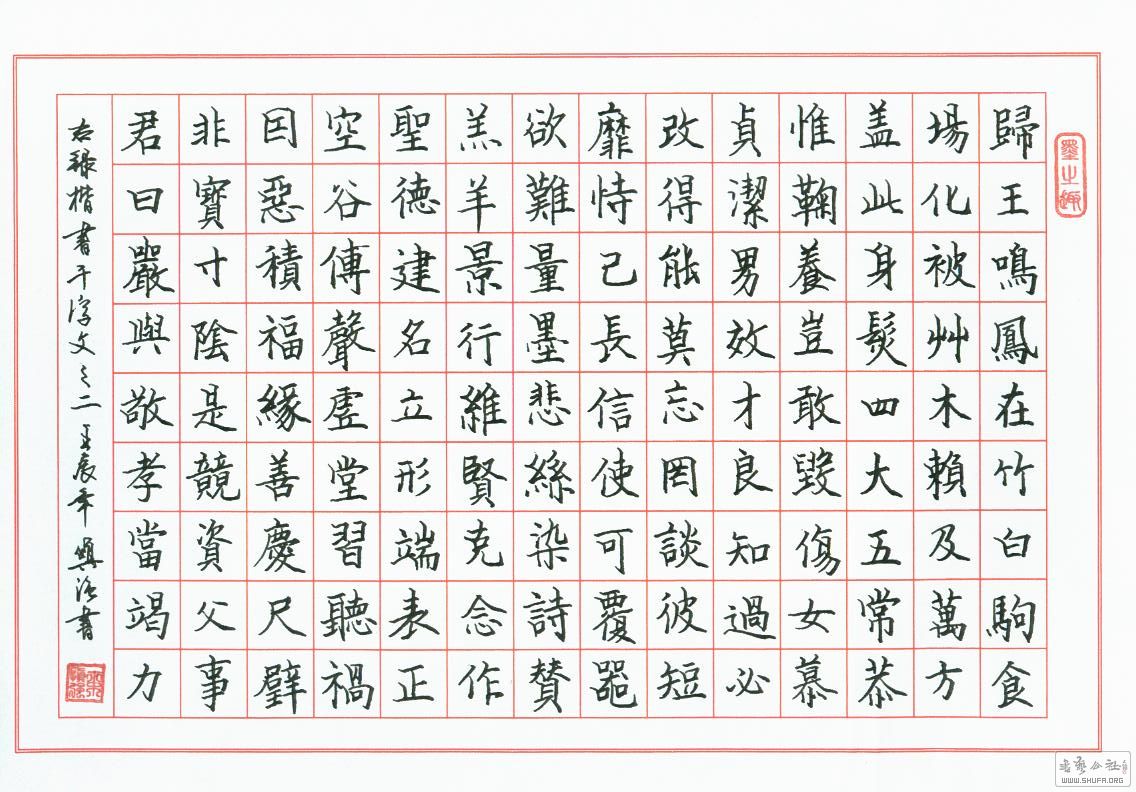 墨之趣
歸王鳴鳳在竹白駒食
場化被艸木賴及萬方
盖此身髮四大五常恭
惟鞠養豈敢毀傷女慕
貞潔男效才良知過必
改得能莫忘罔談彼短
靡恃己長信使可覆器
欲難量墨悲絲染詩賛
羔羊景行維賢克念作
聖德建名立形端表正
空谷傳聲虛堂習聽禍
因惡積福緣善慶尺璧
非寶寸陰是競資父事
君曰嚴與敬孝當竭力
右録楷書千字文之二 壬辰年 書
书艺公社
WWW.SHUFA.ORG